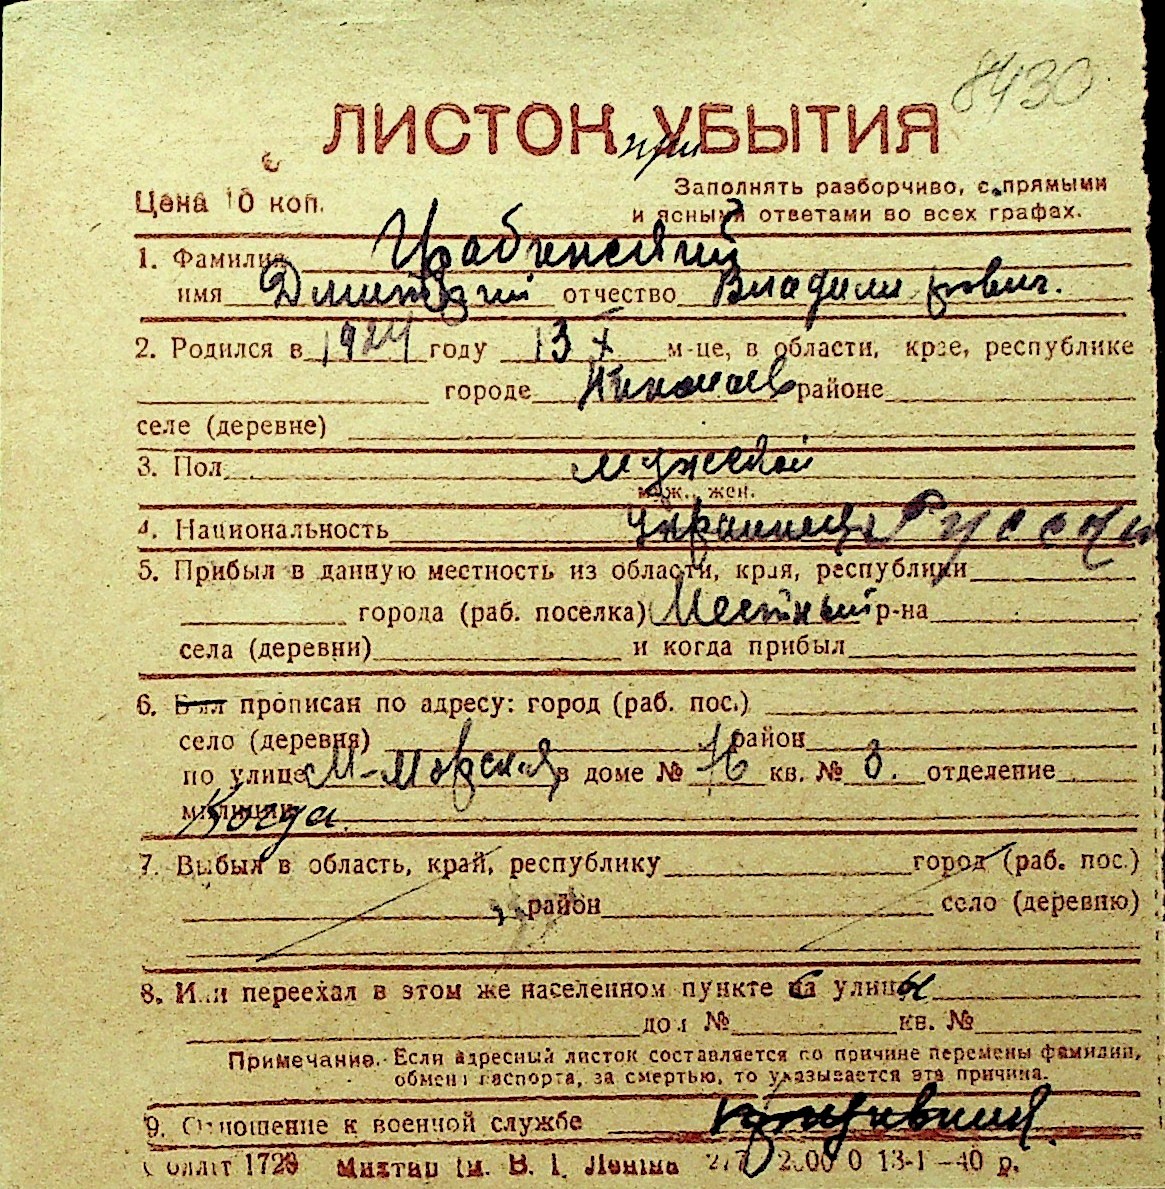 8430
ЛИСТОК при УБЫТИЯ
Цена 10 коп.
Заполнять разборчиво, с прямыми
и ясными ответами во всех графах.
1. Фамилия Грабинский
имя Дмитрий отчество Владимирович.
2. Родился в 1924 году 13 X м-це, в области, крае, республике
городе Николаев районе
селе (деревне)
3. Пол мужской
муж., жен.
4. Национальность украинец Русский
5. Прибыл в данную местность из области, края, республики
города (раб. поселка) Местный р-на
села (деревни) и когда прибыл
6. Был прописан по адресу: город (раб. пос.)
село (деревня) район
по улице М-Морская в доме № 16 кв. № 8. отделение
милиции Когда
7. Выбыл в область, край, республику город (раб. пос.)
район село (деревню)
8. Или переехал в этом же населенном пункте с улицы
дом № кв. №
Примечание. Если адресный листок составляется по причине перемены фамилии,
обмена паспорта, за смертью, то указывается эта причина.
9. Отношение к военной службе
Облліт 1729 Миктип ім. В. І. Леніна 13-І—40 р.